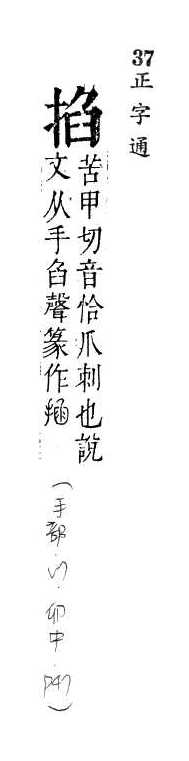 37正字通
掐
苦甲切音恰爪刺也說
文从手臽聲篆作
(手部·卯中·P47)